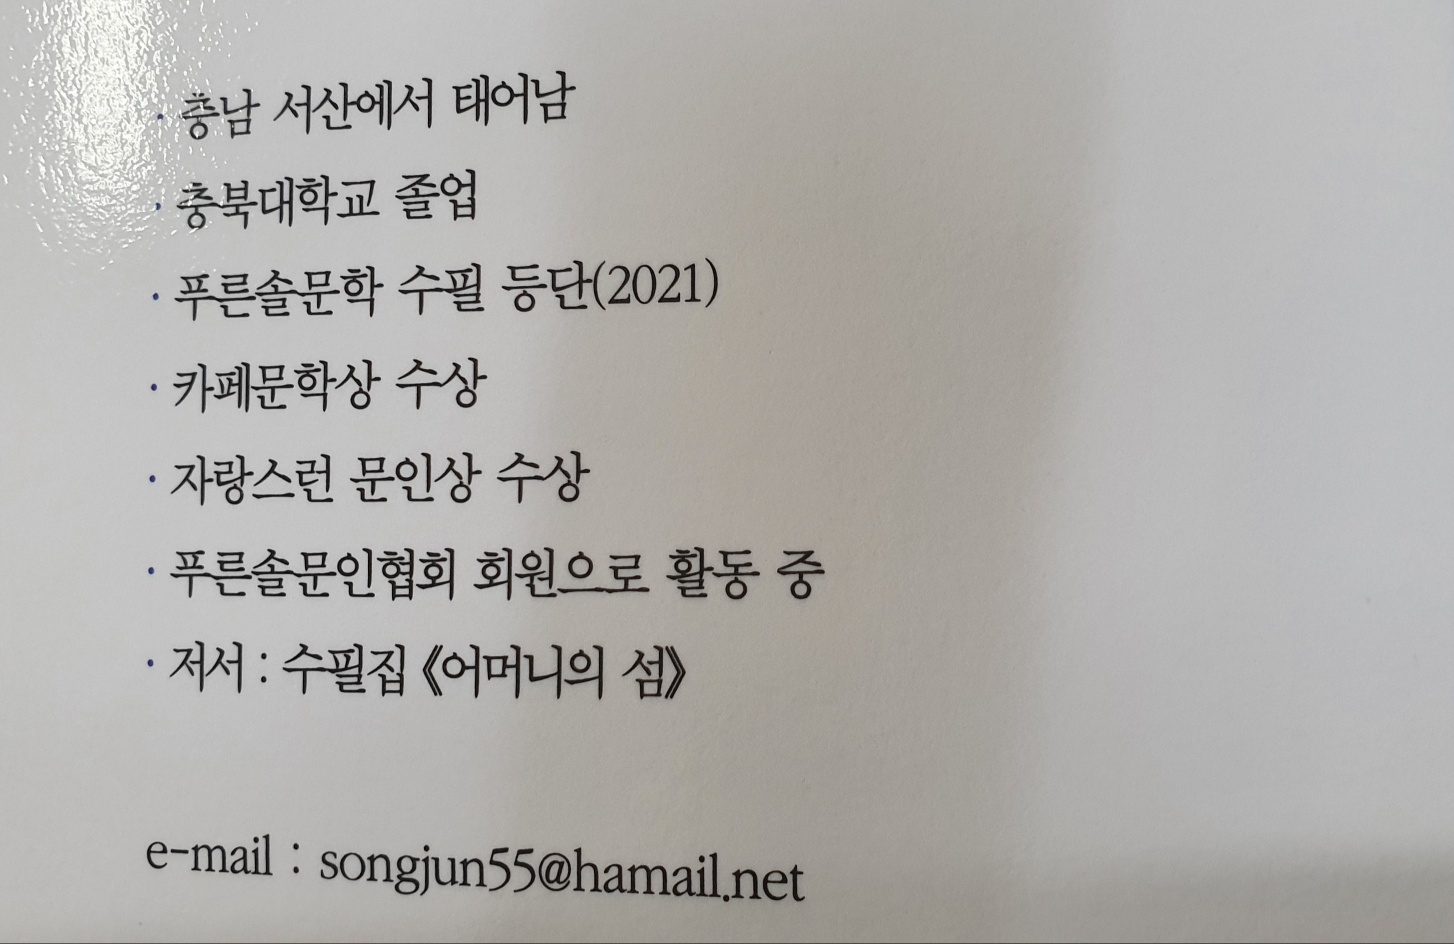 · 충남 서산에서 태어남
· 충북대학교 졸업
· 푸른솔문학 수필 등단(2021)
· 카페문학상 수상
· 자랑스런 문인상 수상
· 푸른솔문인협회 회원으로 활동 중
· 저서 : 수필집 《어머니의 섬》
e-mail : songjun55@hamail.net